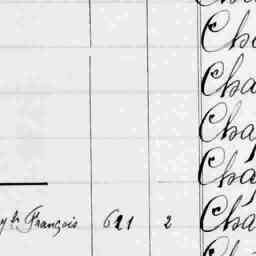 Cha
Cha
Cha
Cha
y h François 621 2 Cha